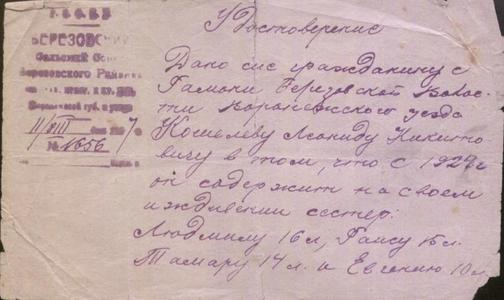 Р.С.Ф.С.Р.
БЕРЕЗОВСКИЙ
Сельский Сов
Березовского Района
Воронежской губ. и уезда
11/VIII 7
№ 1656
Удостоверение
Дано сие гражданину с
Гамани Березовской Волос-
ти Воронежского уезда
Кошелеву Леониду Никито-
вичу в том, что с 1927 г
он содержит на своем
иждивении сестер:
Людмилу 16 л, Раису 15 л.
Тамару 14 л. и Евгению 10 л.